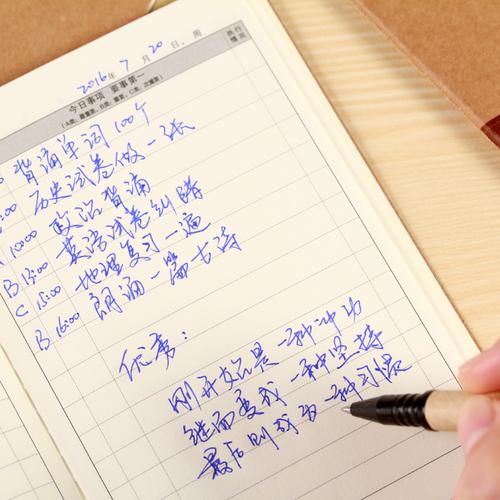 2016年 7月 20日,周
今日事项 要事第一 执行情况
(A类、最重要,B类、重要,C类、次重要)
背诵单词100个
:00 历史试卷做一张
A 10:00 政治背诵
B 13:00 英语试卷纠错
C 15:00 地理复习一遍
B 16:00 朗诵一篇古诗
优秀:
刚开始是一种冲动
继而变成一种坚持
最后则成为一种习惯